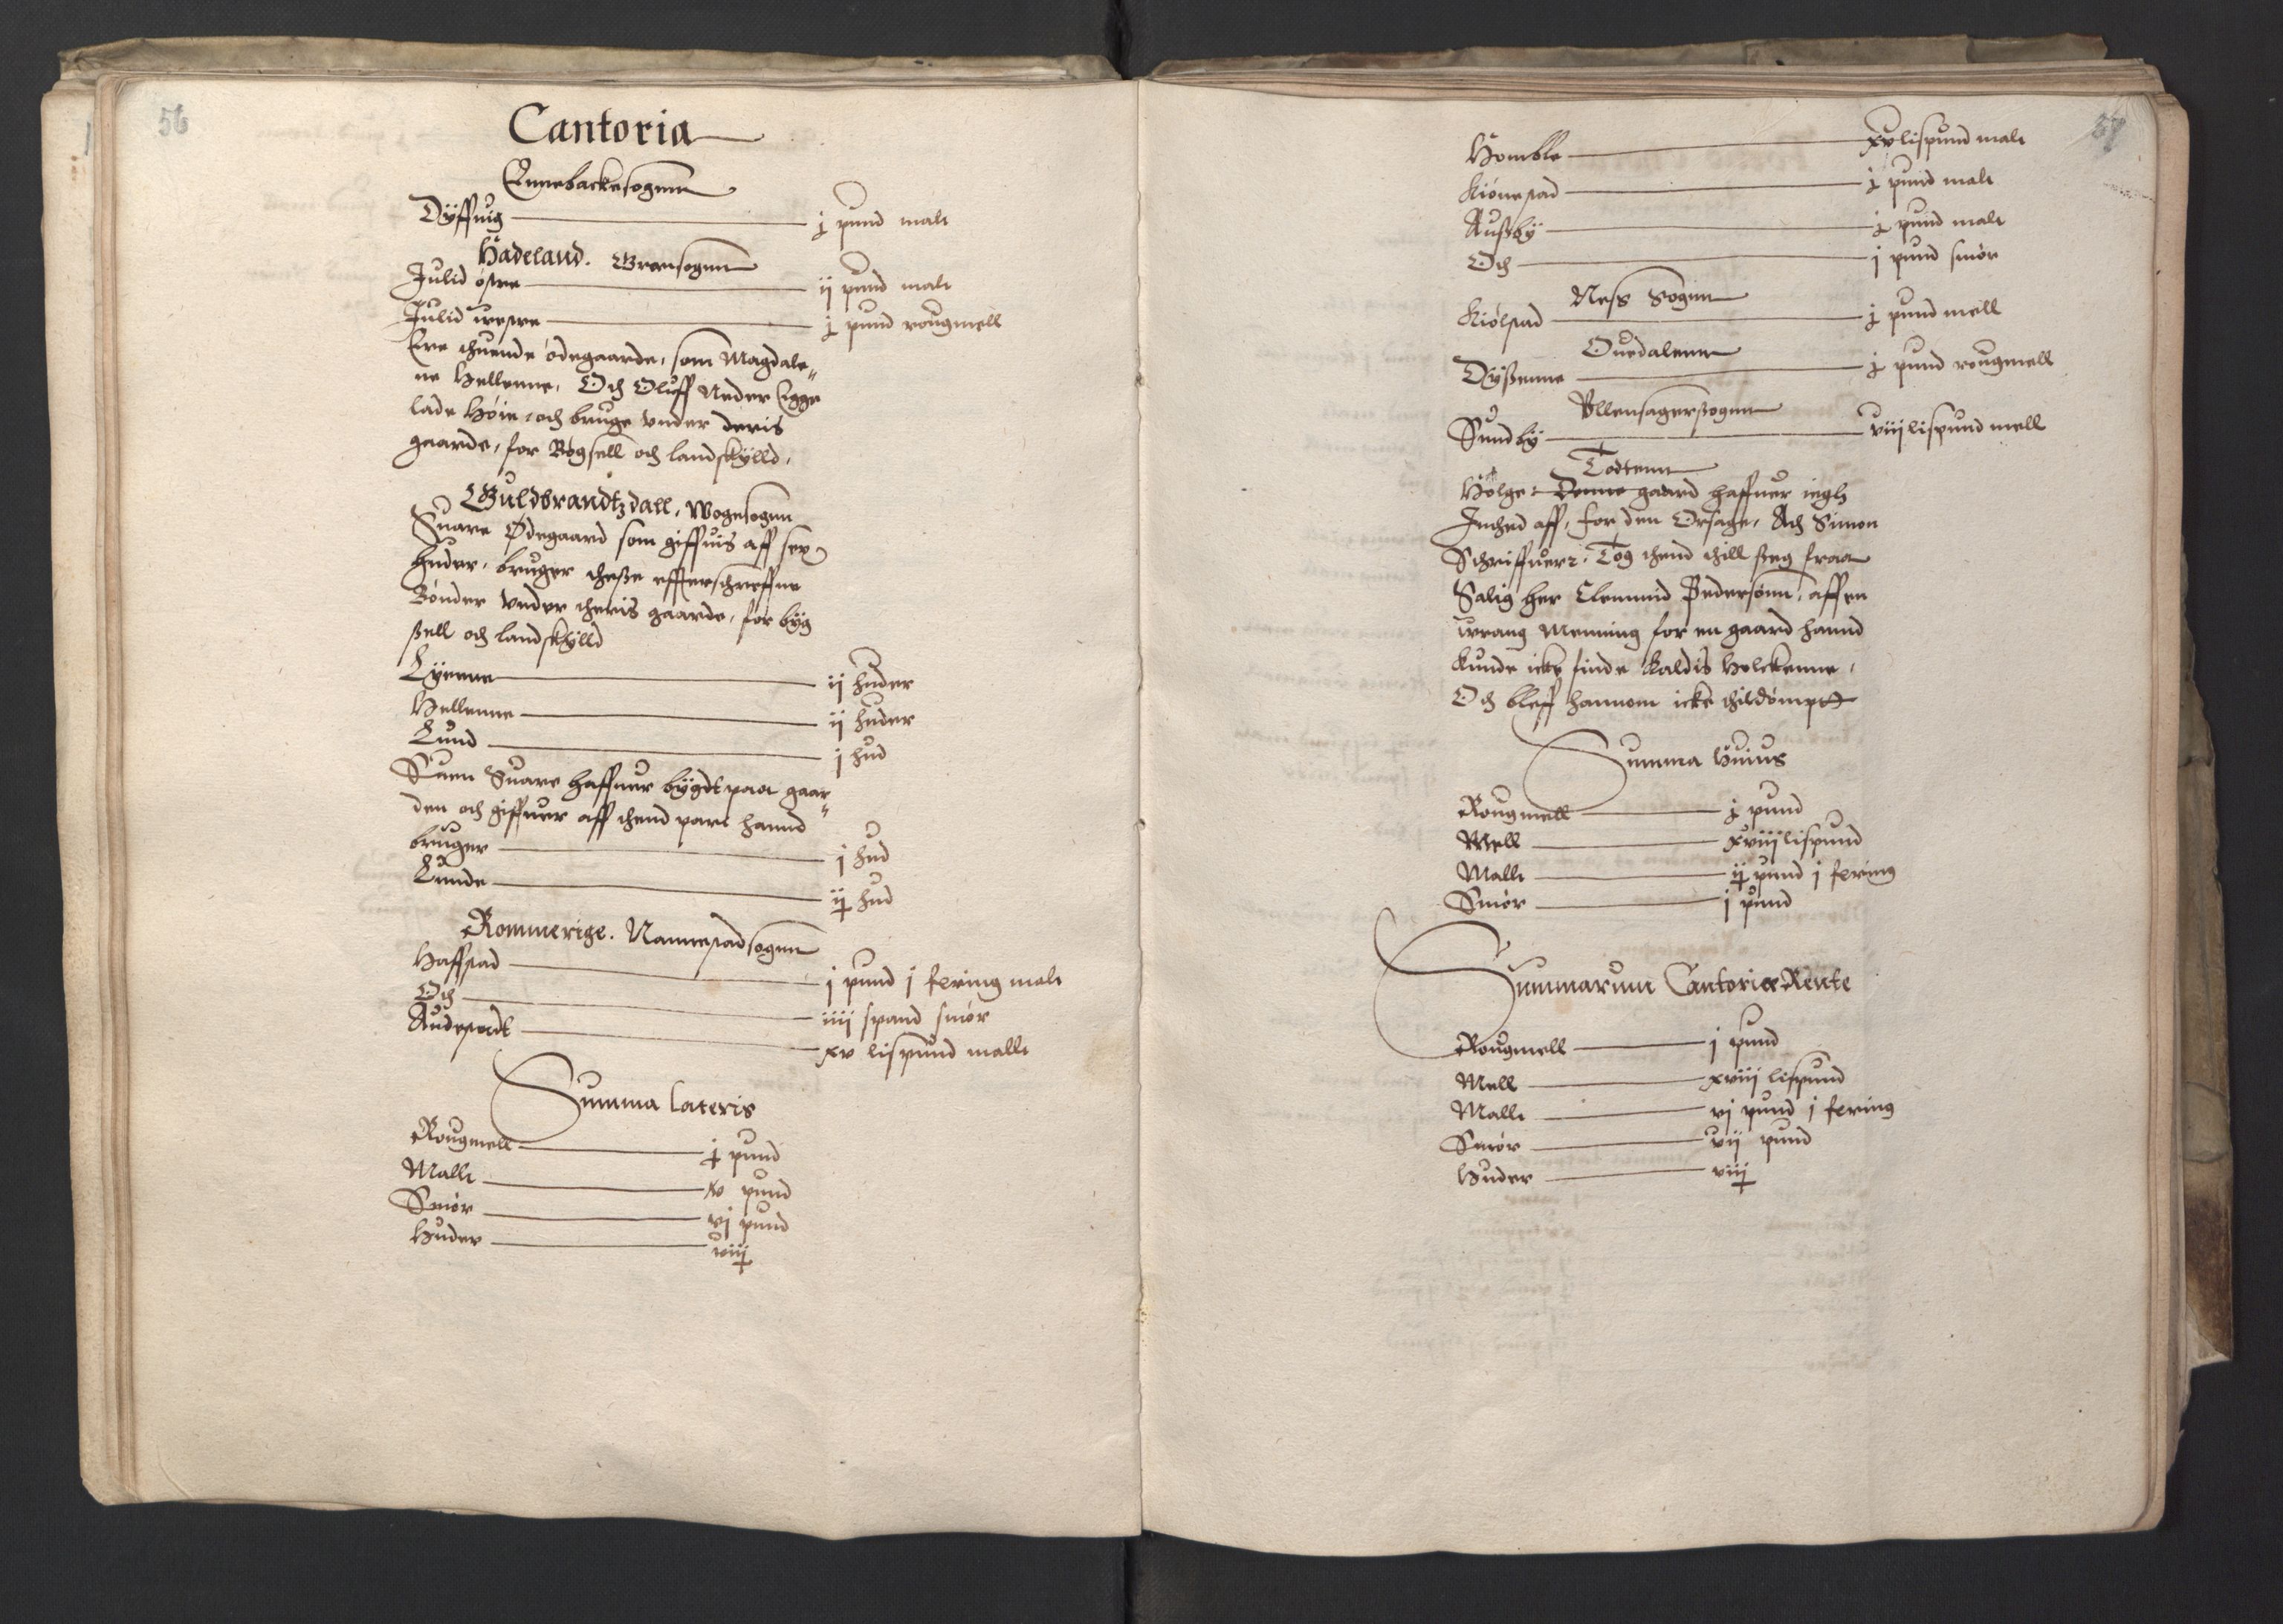 56
Cantoria
Ennebackesogenn
Dÿffuig j pund malt
Hadeland. Gransogenn
Julid østre ij pund malt
Julid westre j pund rougmell
Ere thuende ødegaarde, som Magdale-
ne Hellenne, Och Oluff Neder Eigge
lade Høie, och bruge vnder deris
gaarde, for Bøgsell och landskÿlld,
Guldbrandtzdall, Wogesogen
Suare Ødegaard som giffuis aff sex
huder, bruger thesse effterschreffne
Bønder vnder theris gaarde, for bÿg
sell och landskÿlld
Lÿenne ij huder
Hellenne ij huder
Lund j hud
Suen Suare haffuer bÿgdt paa gaar-
den och giffuer aff thend part hannd
bruger j hud
Lunde ij hud
Rommerige. Nannestadsogenn
Haffstad j pund j fering malt
Och iiij spand smør
Audestadt xv lispund mallt
Summa lateris
Rougmell j pund
Mallt iv pund
Smør vj pund
Huder viij
57
Homble xv lispund malt
Kiønestad j pund malt
Aussbÿ j pund malt
Och j pund smør
Ness Sogenn
Kiølstad j pund mell
Ouedalenn
Dÿssenne j pund rougmell
Vllensagerssogenn
Sundbÿ viij lispund mell
Todtenn
Hølge: Denne gaard haffuer ingh
Inthed aff, for den Orsage, Ath Simon
Schriffuer: Tog thend thill sseg fraa
Salig her Clemend Pedersønn, aff en
wrang Menning for en gaard hannd
Kunde icke finde Kaldis Holckenne,
Och bleff hannom icke thildømptt
Summa Huius
Rougmell j pund
Mell xviij lispund
Mallt ij pund j fering
Smør j pund
Summarum Cantoriæ Rente
Rougmell j pund
Mell xviij lispund
Mallt vj pund j fering
Smør vij pund
Huder viij